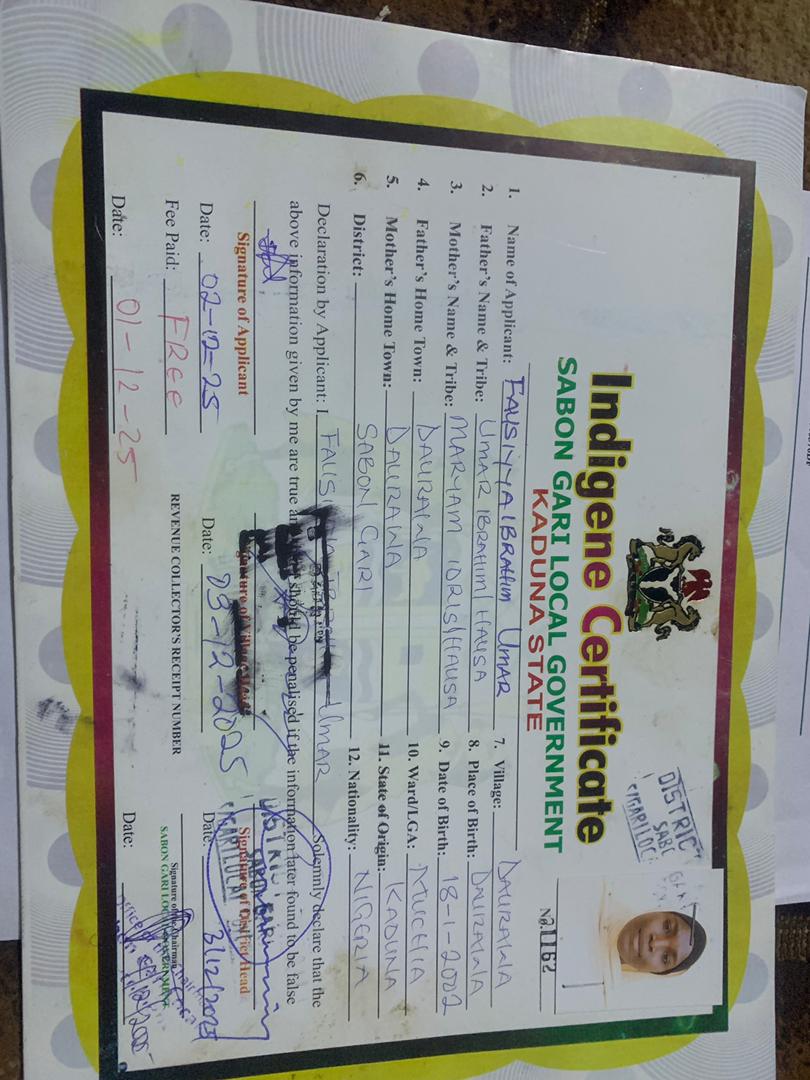 Indigene Certificate
SABON GARI LOCAL GOVERNMENT
KADUNA STATE
DISTRIC
SABO
№ 1162
1. Name of Applicant: FAUSIYYA IBRAHIM UMAR
2. Father's Name & Tribe: UMAR IBRAHIM/HAUSA
3. Mother's Name & Tribe: MARYAM IDRIS/HAUSA
4. Father's Home Town: DAURAWA
5. Mother's Home Town: DAURAWA
6. District: SABON GARI
7. Village: DAURAWA
8. Place of Birth: DAURAWA
9. Date of Birth: 18-1-2002
10. Ward/LGA: MUCHIA
11. State of Origin: KADUNA
12. Nationality: NIGERIA
Declaration by Applicant: I FAUSI UMAR Solemnly declare that the
above information given by me are true should be penalised if the information later found to be false
Signature of Applicant
Signature of Village Head
Signature of District Head
Date: 02-12-25
Date: 03-12-2025
Date: 3/12/2025
Fee Paid: FREE
REVENUE COLLECTOR'S RECEIPT NUMBER
Signature of the Chairman
SABON GARI LOCAL GOVERNMENT
Date: 01-12-25
Date: